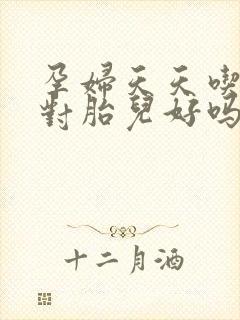 孕婦天天喫
對胎兒好嗎
十二月酒